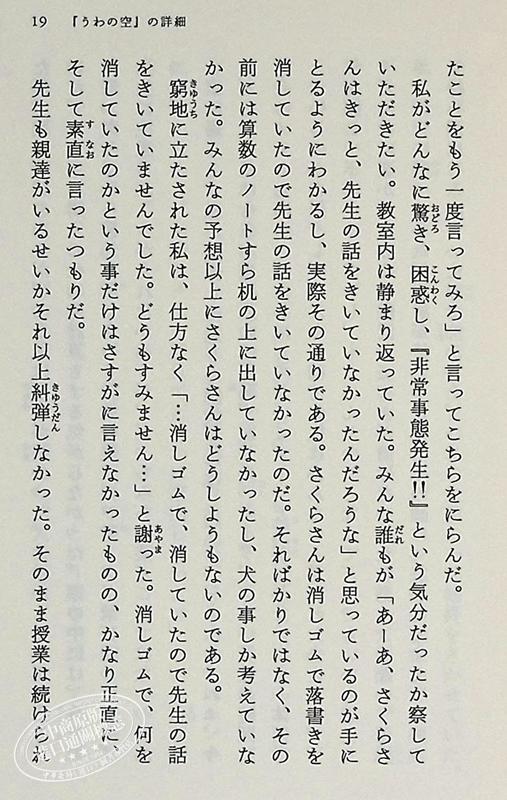 19 『うわの空』の詳細
たことをもう一度言ってみろ」と言ってこちらをにらんだ。
私がどんなに驚き、困惑し、『非常事態発生!!』という気分だったか察して
いただきたい。教室内は静まり返っていた。みんな誰もが「あーあ、さくらさ
んはきっと、先生の話をきいていなかったんだろうな」と思っているのが手に
とるようにわかるし、実際その通りである。さくらさんは消しゴムで落書きを
消していたので先生の話をきいていなかったのだ。そればかりではなく、その
前には算数のノートすら机の上に出していなかったし、犬の事しか考えていな
かった。みんなの予想以上にさくらさんはどうしようもないのである。
窮地に立たされた私は、仕方なく「…消しゴムで、消していたので先生の話
をきいていませんでした。どうもすみません…」と謝った。消しゴムで、何を
消していたのかという事だけはさすがに言えなかったものの、かなり正直に、
そして素直に言ったつもりだ。
先生も親達がいるせいかそれ以上糾弾しなかった。そのまま授業は続けられ